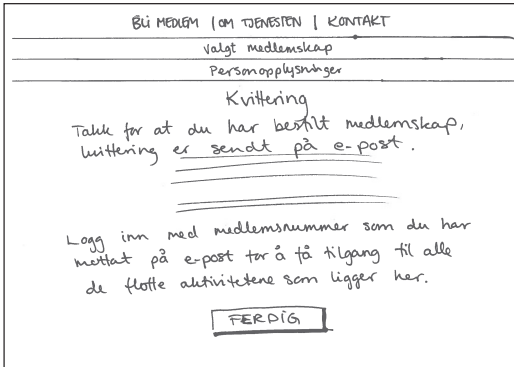 BLI MEDLEM | OM TJENESTEN | KONTAKT
Valgt medlemskap
Personopplysninger
Kvittering
Takk for at du har bestilt medlemskap,
kvittering er sendt på e-post.
Logg inn med medlemsnummer som du har
mottat på e-post for å få tilgang til alle
de flotte aktivitetene som ligger her.
FERDIG